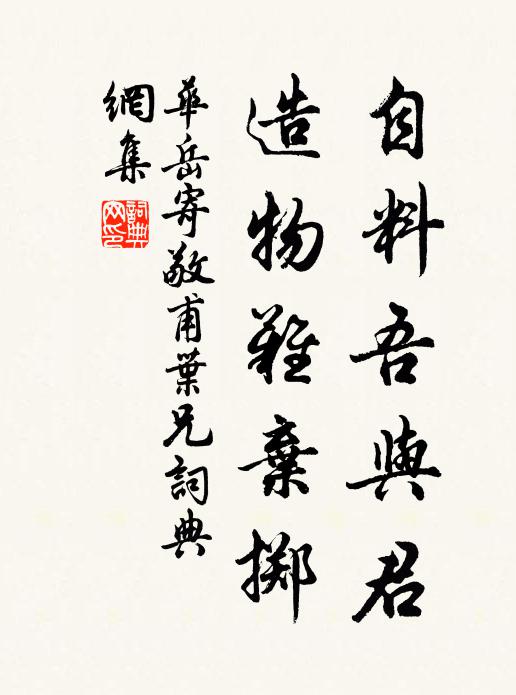 自料吾與君
造物難棄擲
華岳寄敬甫葉兄詞典
網集
詞典網印